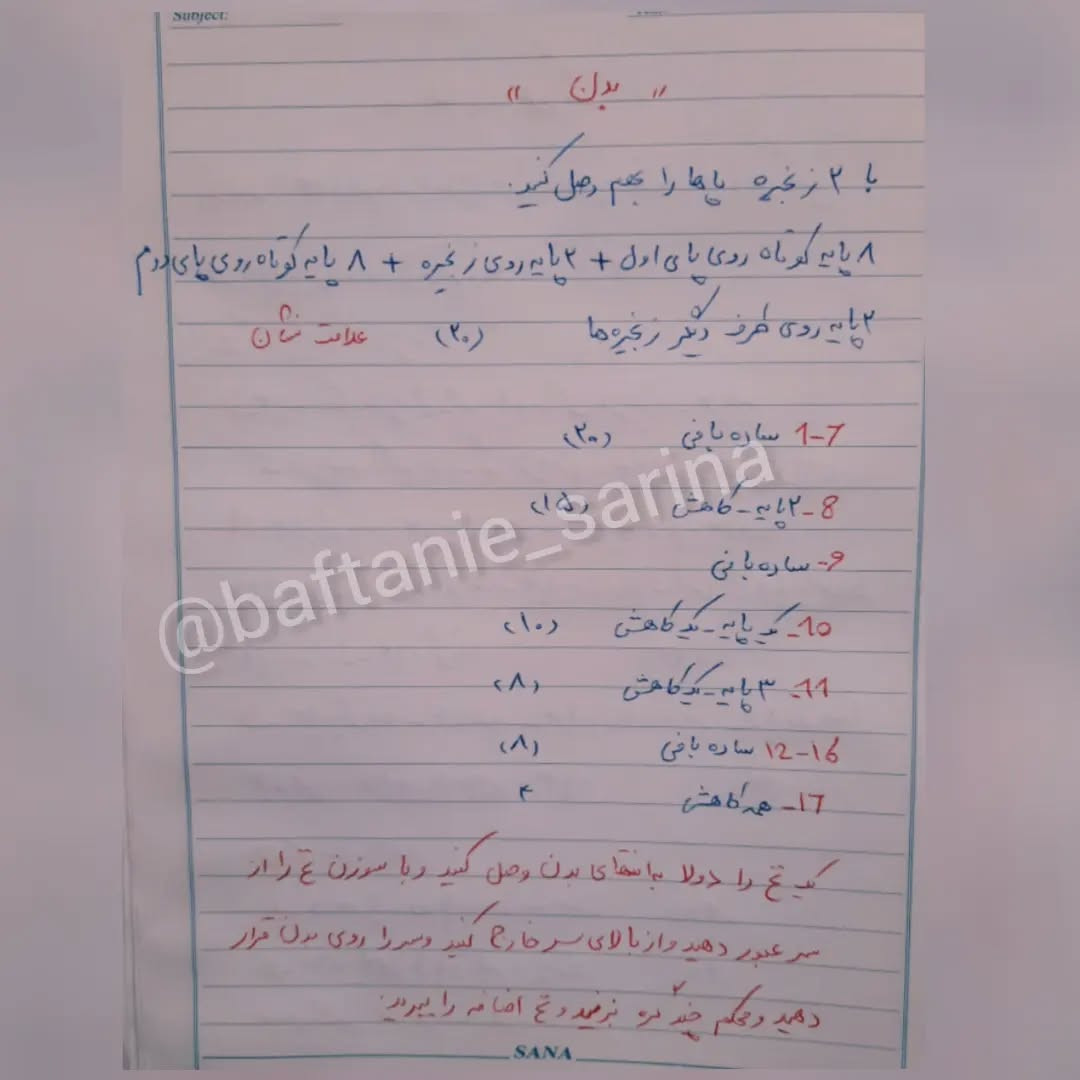 Subject:
" بدن "
با ۲ زنجیره پاها را بهم وصل کنید.
۸ پایه کوتاه روی پای اول + ۲ پایه روی زنجیره + ۸ پایه کوتاه روی پای دوم
۲ پایه روی طرف دیگر زنجیره ها (۲۰) علامت نشان
1-7 ساده بافی (۲۰)
8-۲ پایه - کاهش (۱۵)
9- ساده بافی
10- یک پایه - یک کاهش (۱۰)
11- ۳ پایه - یک کاهش (۸)
12-16 ساده بافی (۸)
17- همه کاهش ۴
یک نخ را دولا به انتهای بدن وصل کنید و با سوزن نخ را از
سر عبور دهید و از بالای سر خارج کنید و سر را روی بدن قرار
دهید و محکم چند گره بزنید و نخ اضافه را ببرید.
@baftanie_sarina
SANA